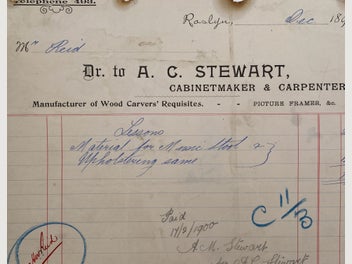 Telephone 493.
Roslyn, Dec 189
Mr Reid
Dr. to A. C. STEWART,
CABINETMAKER & CARPENTER
Manufacturer of Wood Carvers' Requisites. - - PICTURE FRAMER, &c.
Lessons
Material for Music Stool &
Upholstering same
Paid
17/2/1900
A. M. Stewart
for A C Stewart
C 11/3